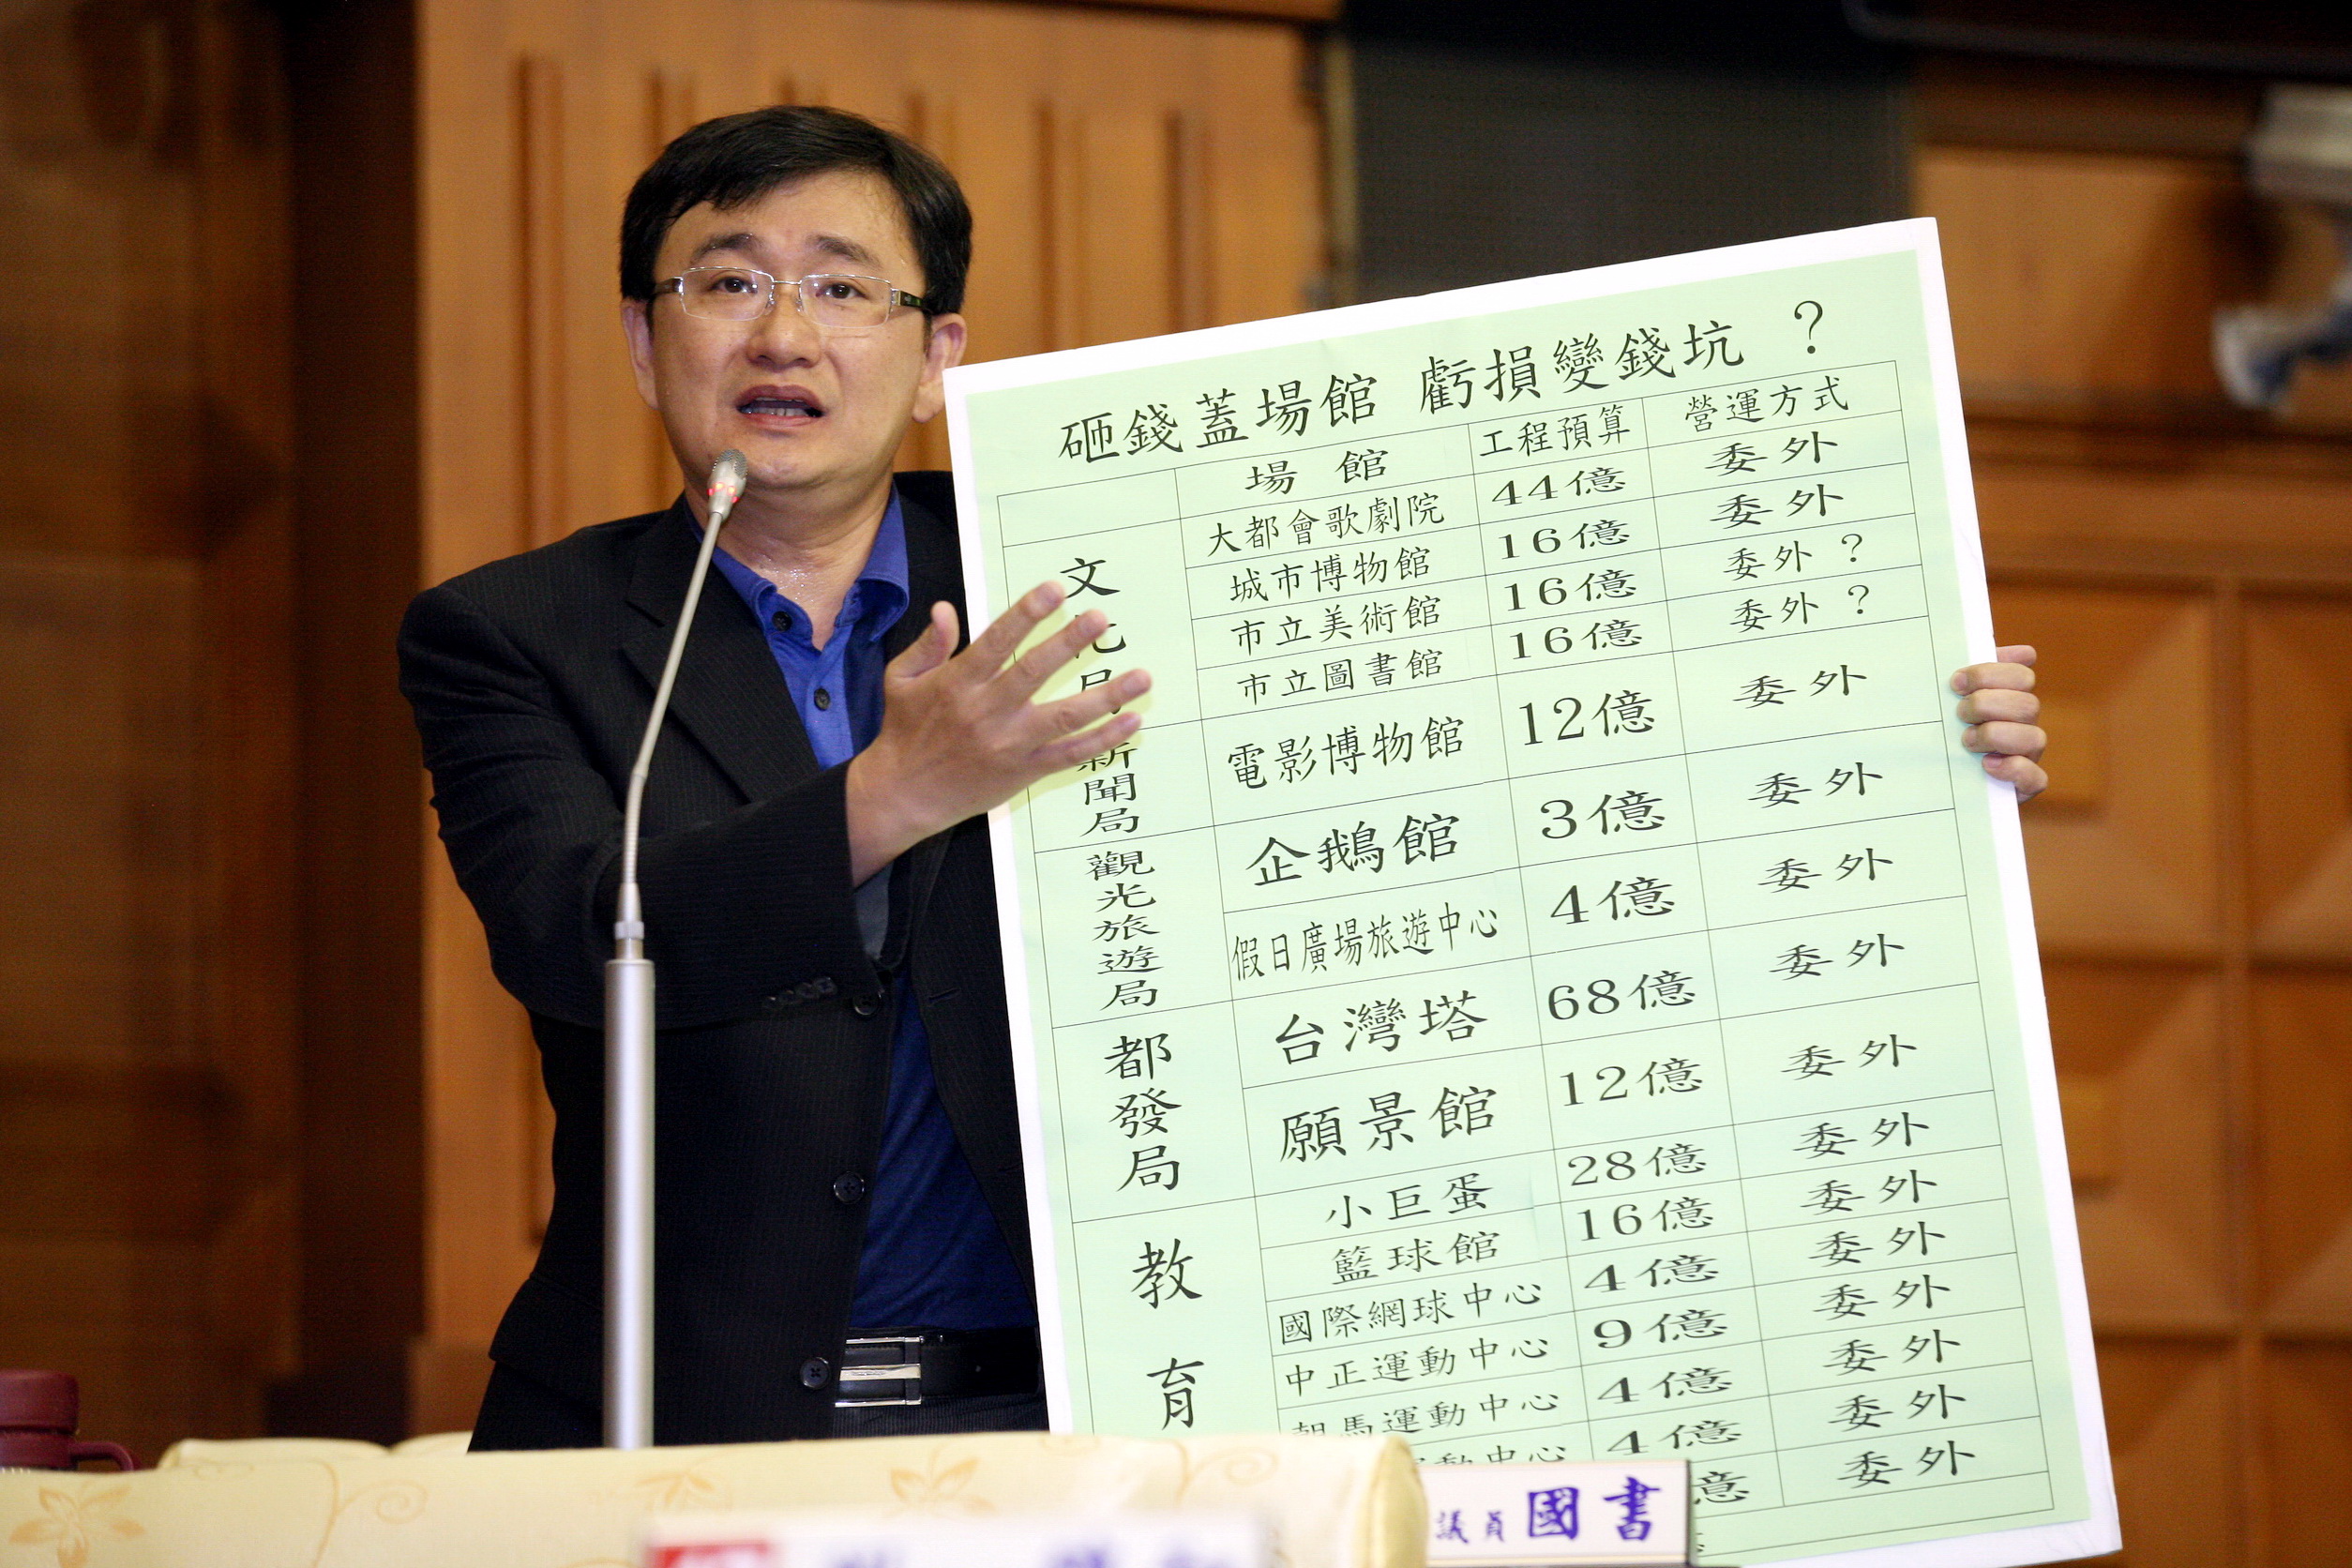 砸錢蓋場館 虧損變錢坑 ?
場館 工程預算 營運方式
文化局
大都會歌劇院 44億 委外
城市博物館 16億 委外
市立美術館 16億 委外 ?
市立圖書館 16億 委外 ?
新聞局
電影博物館 12億 委外
觀光旅遊局
企鵝館 3億 委外
假日廣場旅遊中心 4億 委外
都發局
台灣塔 68億 委外
願景館 12億 委外
教育
小巨蛋 28億 委外
籃球館 16億 委外
國際網球中心 4億 委外
中正運動中心 9億 委外
朝馬運動中心 4億 委外
運動中心 4億 委外
億 委外
議員 國書